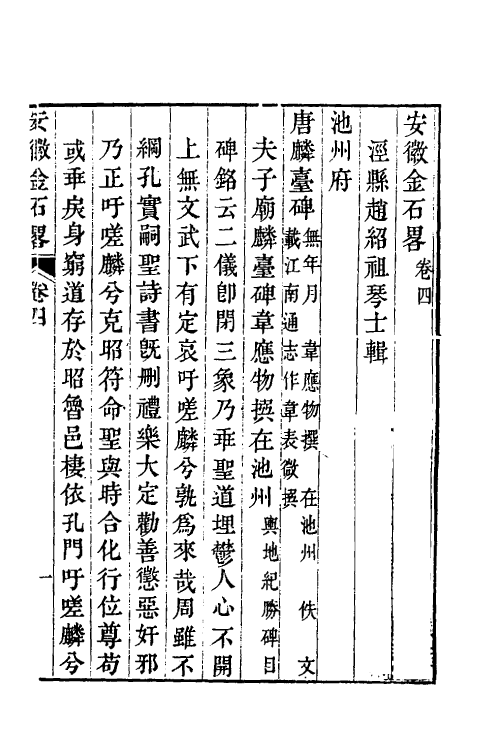 安徽金石畧卷四
涇縣趙紹祖琴士輯
池州府
唐麟臺碑無年月 韋應物撰 在池州 佚 文
載江南通志作韋表微撰
夫子廟麟臺碑韋應物撰在池州輿地紀勝碑目
碑銘云二儀卽閉三象乃乖聖道埋鬱人心不開
上無文武下有定哀吁嗟麟兮孰爲來哉周雖不
綱孔實嗣聖詩書旣刪禮樂大定勸善懲惡奸邪
乃正吁嗟麟兮克昭符命聖與時合化行位尊苟
或乖戾身窮道存於昭魯邑棲依孔門吁嗟麟兮
安徽金石畧 卷四 一